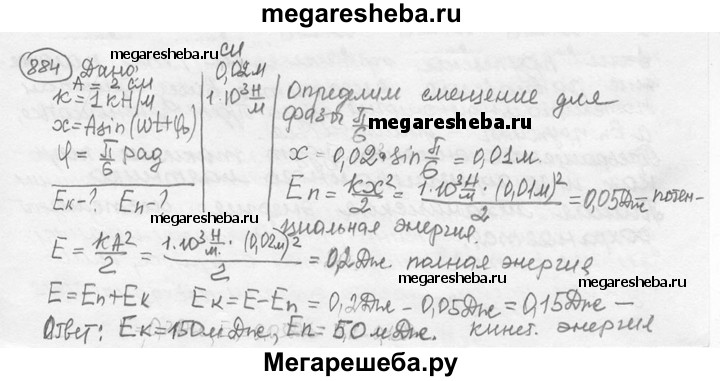 megaresheba.ru
884 Дано: СИ
A = 2 см 0,02 м
k = 1 кН/м 1·10³ Н/м
x = A sin(ωt+φ₀)
φ = π/6 рад
Eк-? Eп-?
Определим смещение для
фазы π/6
x = 0,02·sin π/6 = 0,01 м.
Eп = kx²/2 = 1·10³ Н/м·(0,01м)²/2 = 0,05 Дж потен-
циальная энергия.
E = kA²/2 = 1·10³ Н/м·(0,02м)²/2 = 0,2 Дж. полная энергия
E = Eп + Eк Eк = E - Eп = 0,2 Дж - 0,05 Дж = 0,15 Дж —
кинет. энергия
Ответ: Eк = 150 мДж, Eп = 50 мДж.
megaresheba.ru
megaresheba.ru
megaresheba.ru
megaresheba.ru
megaresheba.ru
megaresheba.ru
Мегарешеба.ру